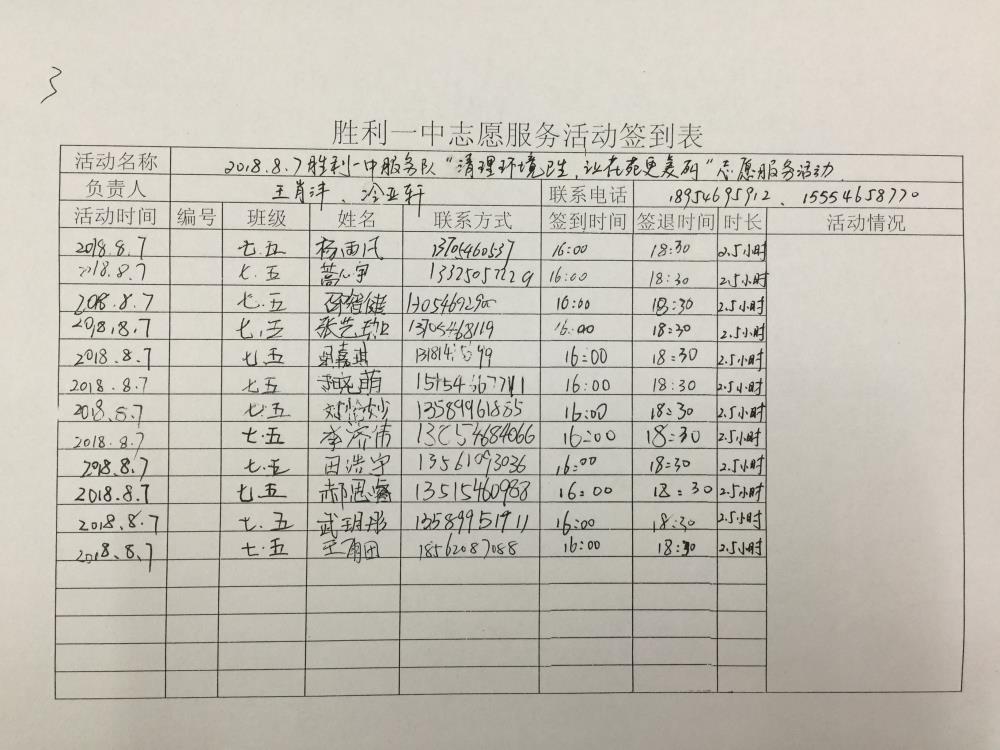 3
胜利一中志愿服务活动签到表
活动名称 2018.8.7胜利一中服务队“清理环境卫生,让在苑更美丽”志愿服务活动.
负责人 王肖洋、冷亚轩 联系电话 18954695912、15554658770
活动时间 编号 班级 姓名 联系方式 签到时间 签退时间 时长 活动情况
2018.8.7 七.五 杨雨凡 13705460537 16:00 18:30 2.5小时
2018.8.7 七.五 16:00 18:30 2.5小时
2018.8.7 七.五 智健 16:00 18:30 2.5小时
2018.8.7 七.五 张艺 13705468119 16:00 18:30 2.5小时
2018.8.7 七.五 嘉琪 16:00 18:30 2.5小时
2018.8.7 七五 萌 16:00 18:30 2.5小时
2018.8.7 七.五 13589961855 16:00 18:30 2.5小时
2018.8.7 七.五 李济伟 13054684066 16:00 18:30 2.5小时
2018.8.7 七.五 田浩宇 13561093036 16:00 18:30 2.5小时
2018.8.7 七五 郝思睿 13515460988 16:00 18:30 2.5小时
2018.8.7 七.五 武玥彤 13589951911 16:00 18:30 2.5小时
2018.8.7 七.五 18562087088 16:00 18:30 2.5小时